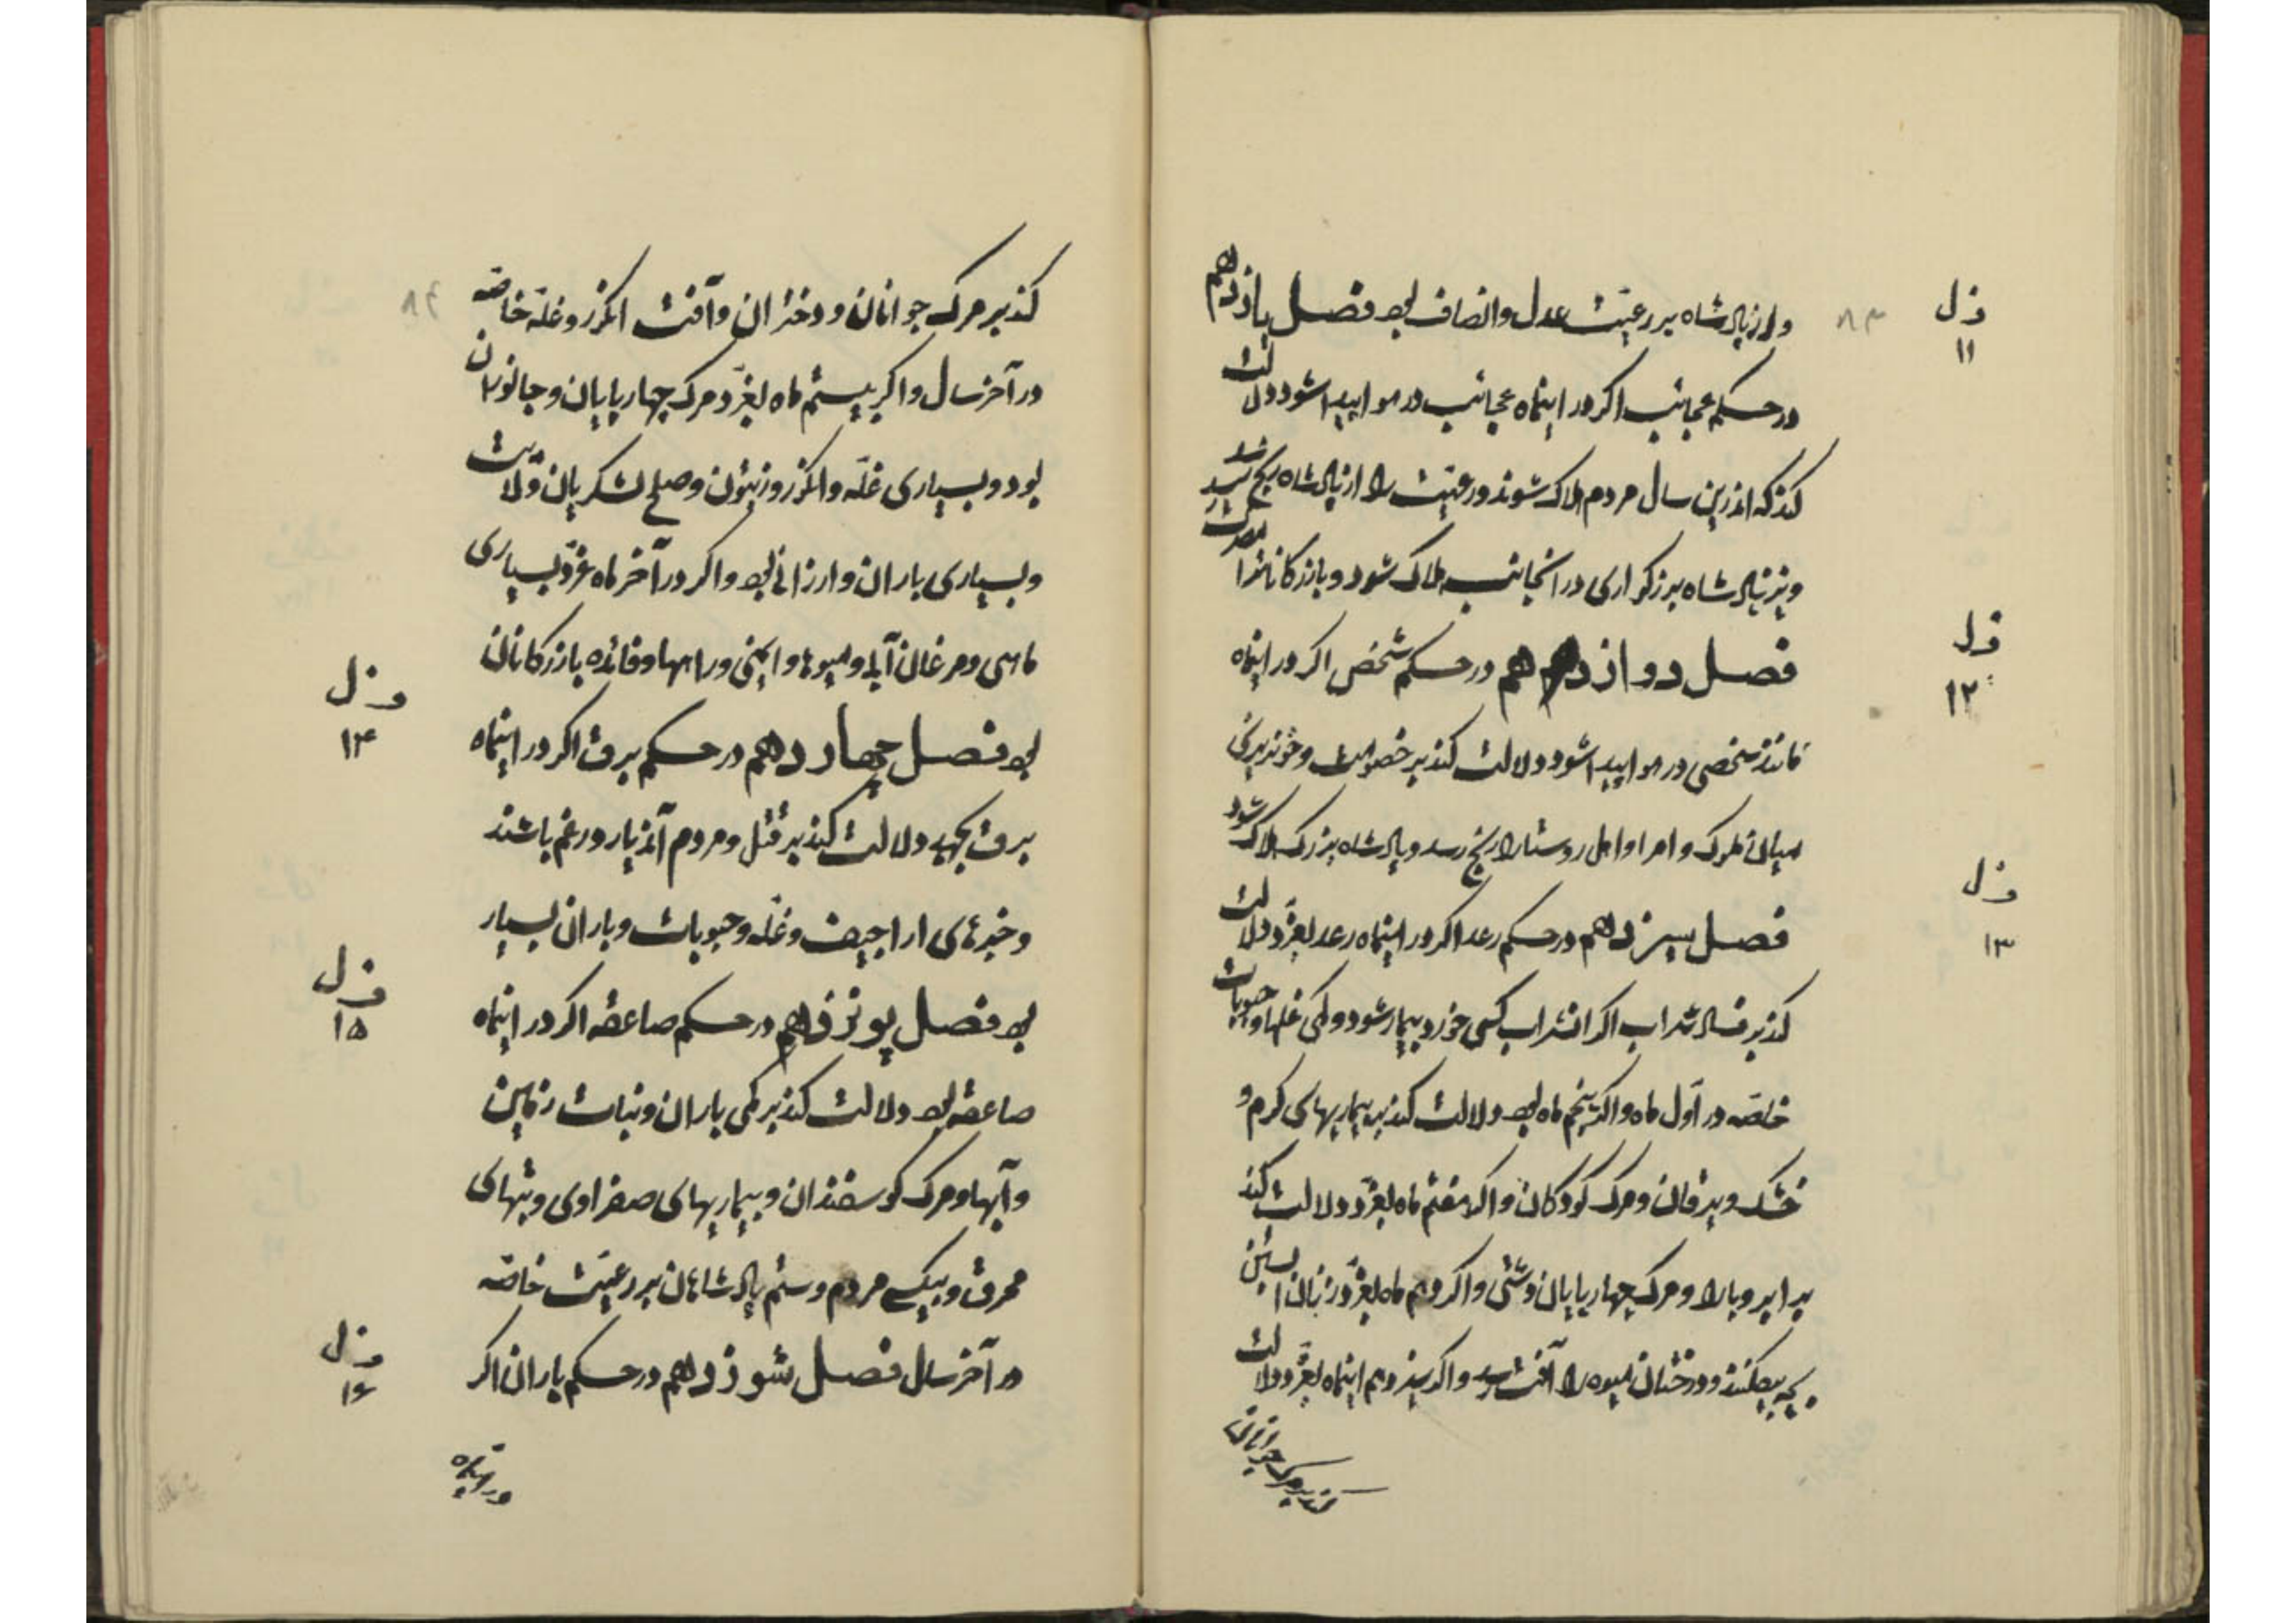 ۸۳
ف ل ۱۱
و از پادشاه بر رعیّت عدل و انصاف بود فصل یازدهم
در حکم عجائب اکر در اینماه عجائب در هوا پیدا شود دلالت
کند که اندرین سال مردم هلاک شوند و رعیّت را از پادشاه رنج رسد
و نیز پادشاه بزرکواری در آنجانب هلاک شود و بازرکانانرا
ف ل ۱۲
فصل دوازدهم در حکم شخص اکر در اینماه
مانند شخصی در هوا پیدا شود دلالت کند بر خصومت و خونریزی
میان ملوک و امرا و اهل روستا را رنج رسد و پادشاه بزرک هلاک شود
ف ل ۱۳
فصل سیزدهم در حکم رعد اکر در اینماه رعد بغرّد دلالت
کند بر فساد شراب اکر انشراب کسی خورد بیمار شود و کمی غلها و حبوبات
خاصّه در اوّل ماه و اکر پنجم ماه بود دلالت کند بر بیماریهای کرم و
خشک و یرقان و مرک کودکان و اکر هفتم ماه بغرّد دلالت کند
بر ابر و باران و مرک چهارپایان وشتی و اکر دهم ماه بغرّد زنان آبستن
بچه بیفکنند و درختان میوه را آفت رسد و اکر سیزدهم اینماه بغرّد دلالت
کند بر مرک جوانان
۸۴
کند بر مرک جوانان و دختران و آفت انکور و غلّه خاصّه
در آخر سال و اکر بیستم ماه بغرّد مرک چهارپایان و جانوران
بود و بسیاری غلّه و انکور و زیتون و صلح لشکریان ولایت
و بسیاری باران و ارزانی بود و اکر در آخر ماه غرّد بسیاری
ماهی و مرغان آبی و میوها و ایمنی راهها و فائده بازرکانان
ف ل ۱۴
بود فصل چهاردهم در حکم برق اکر در اینماه
برق بجهد دلالت کند بر قتل و مردم آندیار در غم باشند
و خبرهای اراجیف و غلّه و حبوبات و باران بسیار
ف ل ۱۵
بود فصل پونزدهم در حکم صاعقه اکر در اینماه
صاعقه بود دلالت کند بر کمی باران و نبات زمین
و آبها و مرک کوسفندان و بیماریهای صفراوی و تبهای
محرق و بیکسی مردم و ستم پادشاهان بر رعیّت خاصّه
ف ل ۱۶
در آخر سال فصل شوزدهم در حکم باران اکر
در اینماه